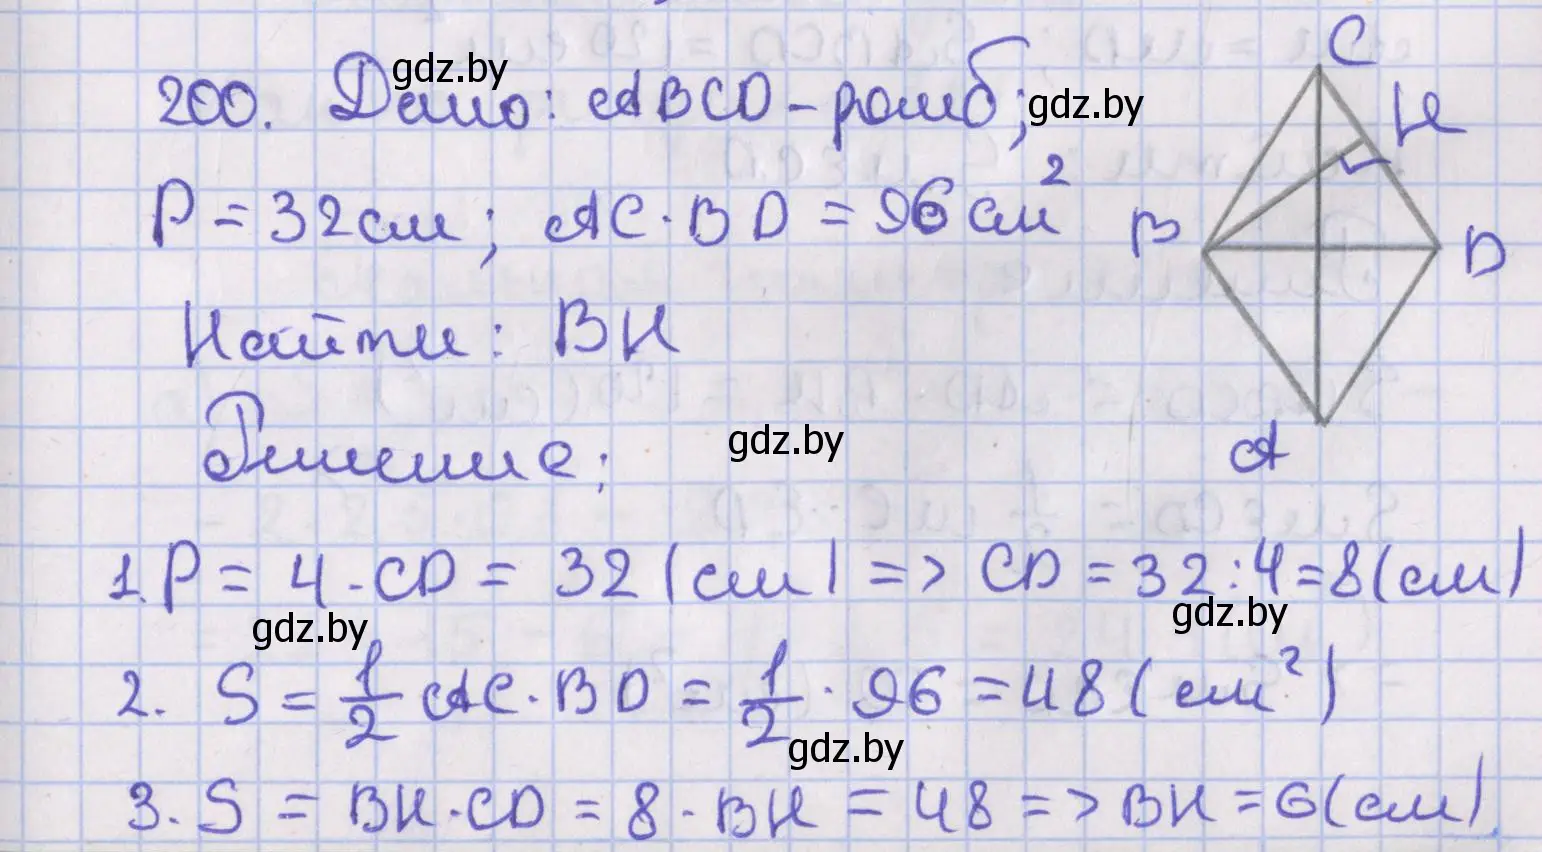 200. Дано: ABCD - ромб;
P = 32 см; AC · BD = 96 см²
Найти: BH
Решение:
1. P = 4 · CD = 32 (см) => CD = 32 : 4 = 8 (см)
2. S = 1/2 AC · BD = 1/2 · 96 = 48 (см²)
3. S = BH · CD = 8 · BH = 48 => BH = 6 (см)
C
H
B
D
A
gdz.by
gdz.by
gdz.by
gdz.by
gdz.by
gdz.by